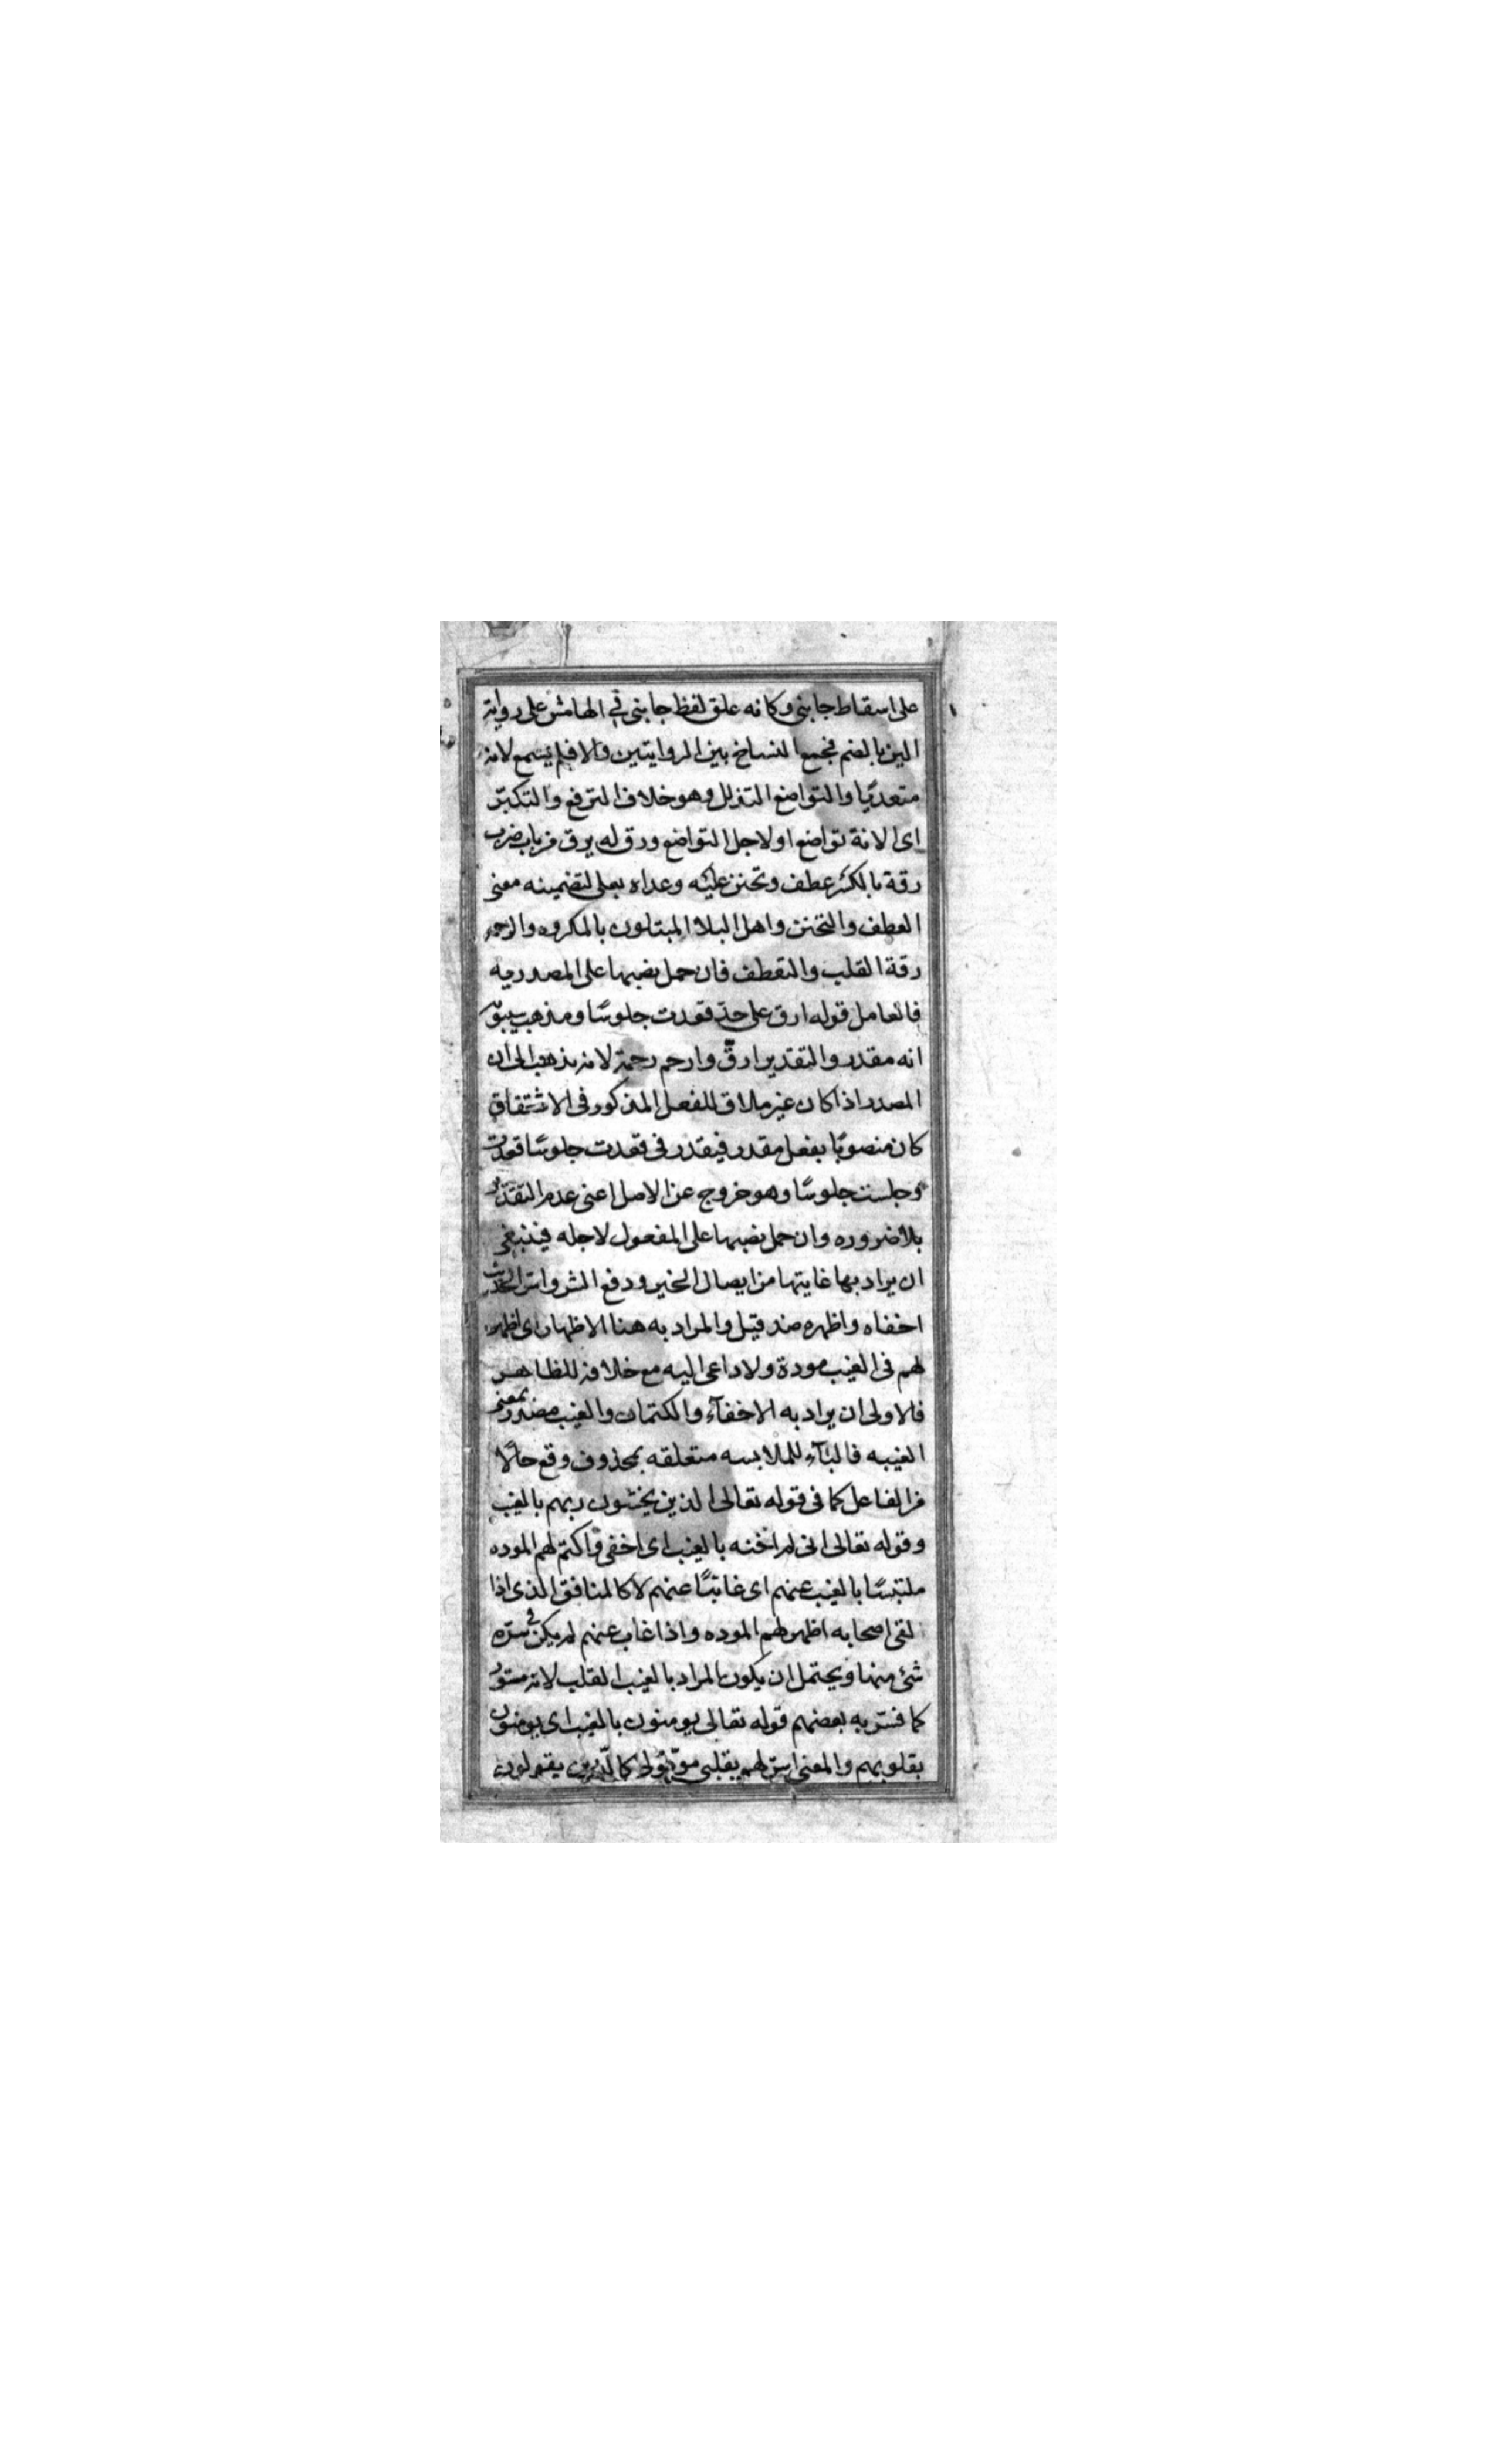 على اسقاط جانبى وكانه علق لفظ جانبى فى الهامش على رواية
الين بالضم فجمع النساخ بين الروايتين والا فلم يسمع لانه
متعديا والتواضع التذلل وهو خلاف الترفع والتكبر
اى الانة تواضع او لاجل التواضع ورق له يرق من باب ضرب
رقة بالكسر عطف وتحنن عليه وعداه بعلى لتضمينه معنى
العطف والتحنن واهل البلاء المبتلون بالمكروه والرحمه
رقة القلب والتعطف فان حمل نصبها على المصدريه
فالعامل قوله ارق على حد قعدت جلوسًا ومذهب سيبويه
انه مقدر والتقدير ارقّ وارحم رحمة لانه يذهب الى ان
المصدر اذا كان غير ملاق للفعل المذكور فى الاشتقاق
كان منصوبًا بفعل مقدر فيقدر فى قعدت جلوسًا قعدت
وجلست جلوسًا وهو خروج عن الاصل اعنى عدم التقدير
بلا ضروره وان حمل نصبها على المفعول لاجله فينبغى
ان يراد بها غايتها من ايصال الخير ودفع الشر واسرّ الحديث
اخفاه واظهره ضد قيل والمراد به هنا الاظهار اى اظهر
لهم فى الغيب مودة ولا داعى اليه مع خلافه للظاهر
فالاولى ان يراد به الاخفآء والكتمان والغيب مصدر بمعنى
الغيبه فالبآء للملابسه متعلقه بمحذوف وقع حالًا
من الفاعل كما فى قوله تعالى الذين يخشون ربهم بالغيب
وقوله تعالى انى لم اخنه بالغيب اى اخفى واكتم لهم الموده
ملتبسًا بالغيب عنهم اى غائبًا عنهم لا كالمنافق الذى اذا
لقى اصحابه اظهر لهم الموده واذا غاب عنهم لم يكن فى سرّه
شئ منها ويحتمل ان يكون المراد بالغيب القلب لانه مستور
كما فسر به بعضهم قوله تعالى يومنون بالغيب اى يومنون
بقلوبهم والمعنى اسرّ لهم بقلبى مودّة ولا كالذين يقولون